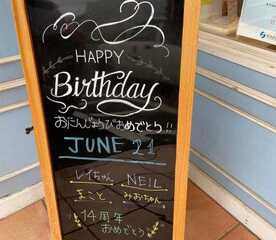 HAPPY
Birthday
おたんじょうびおめでとう!!
JUNE 21
レイちゃん NEIL
まこと みおちゃん
14周年
おめでとう